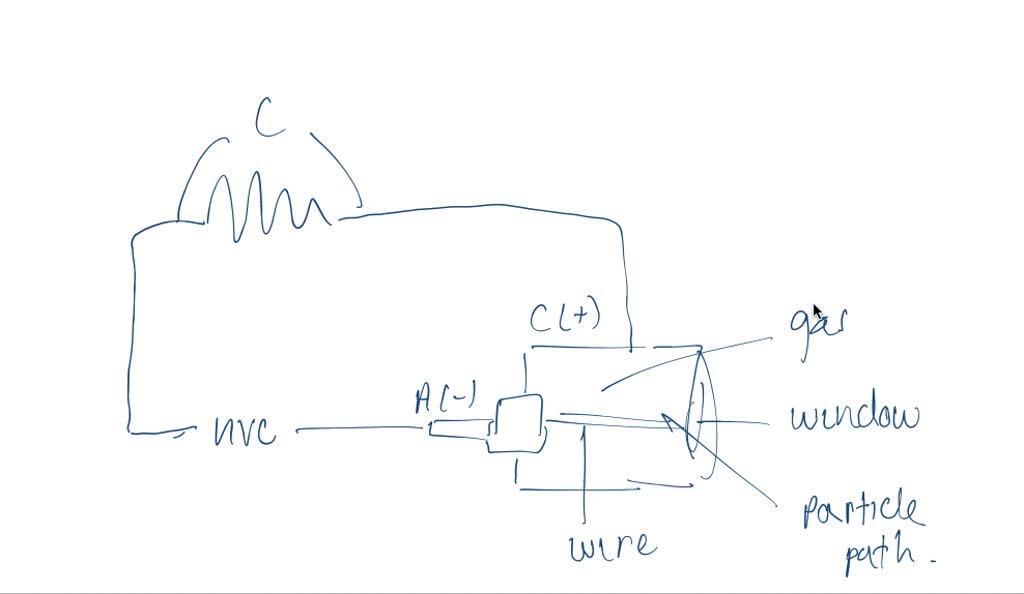 C
C(+)
gas
A(-)
window
nvc
particle
path.
wire